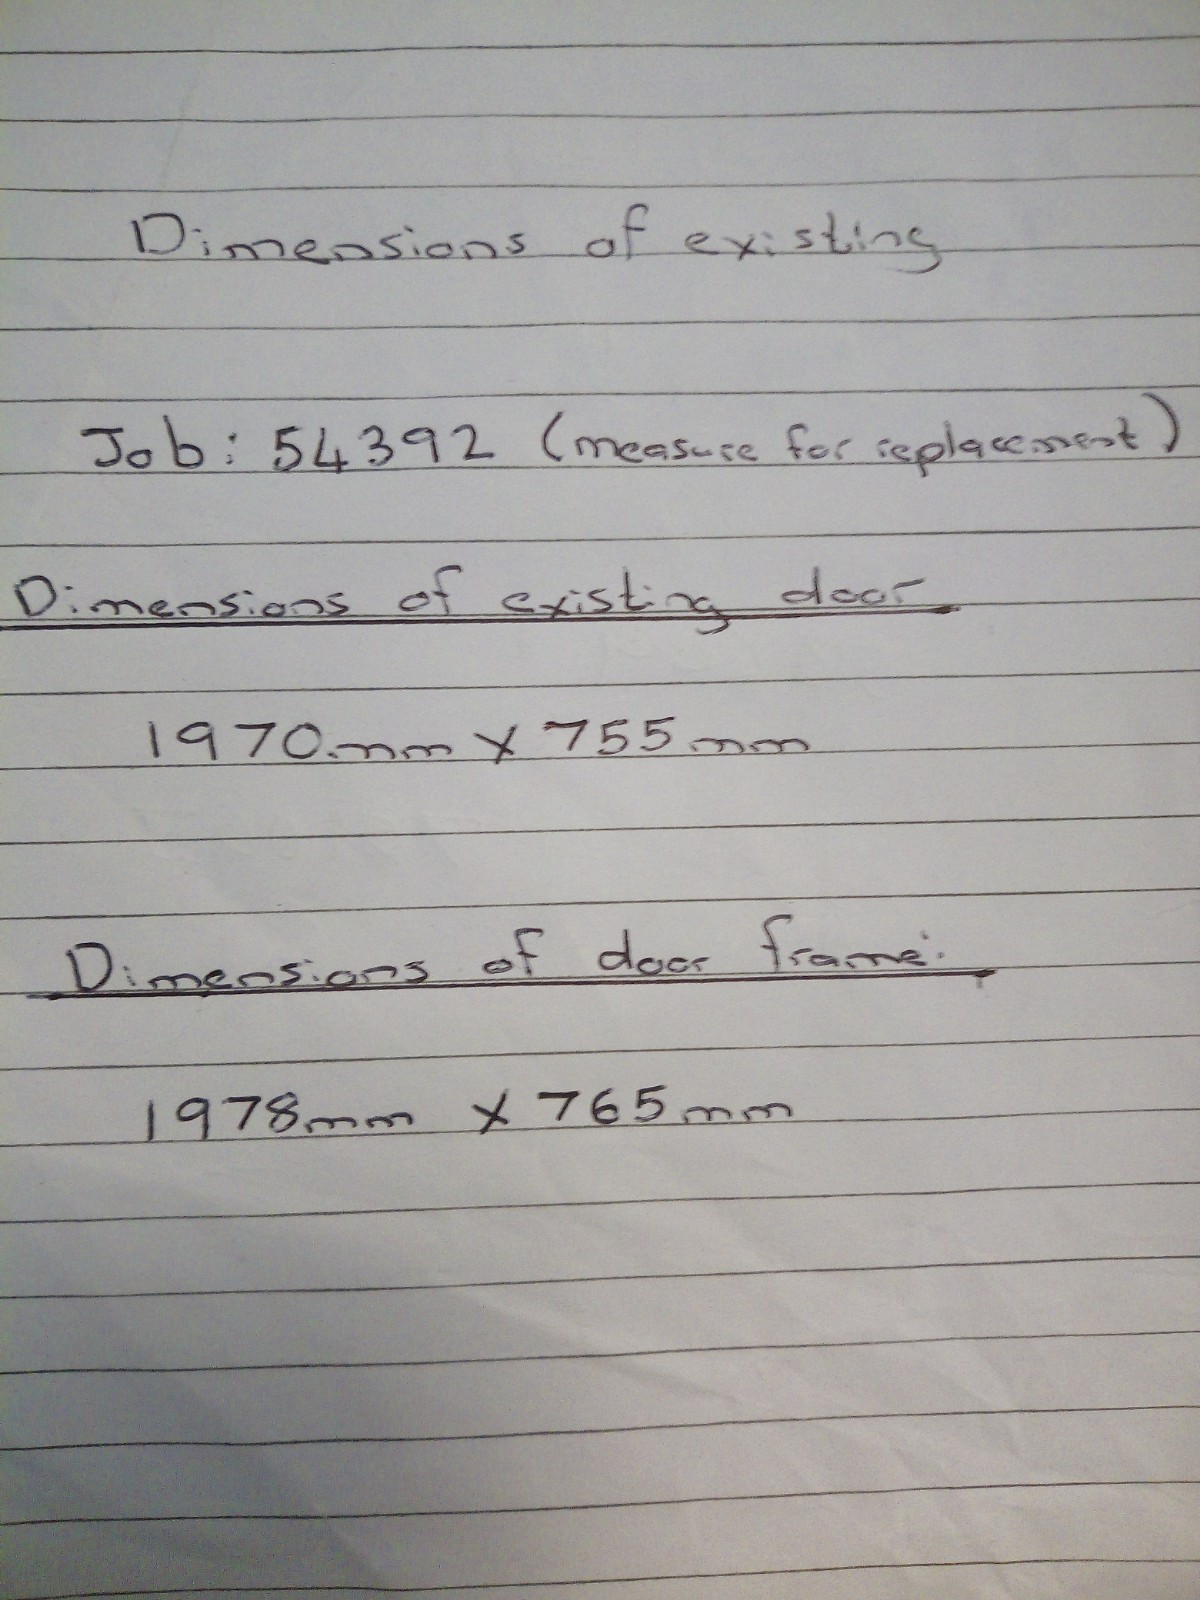 Dimensions of existing
Job: 54392 (measure for replacement)
Dimensions of existing door
1970mm x 755mm
Dimensions of door frame:
1978mm x 765mm